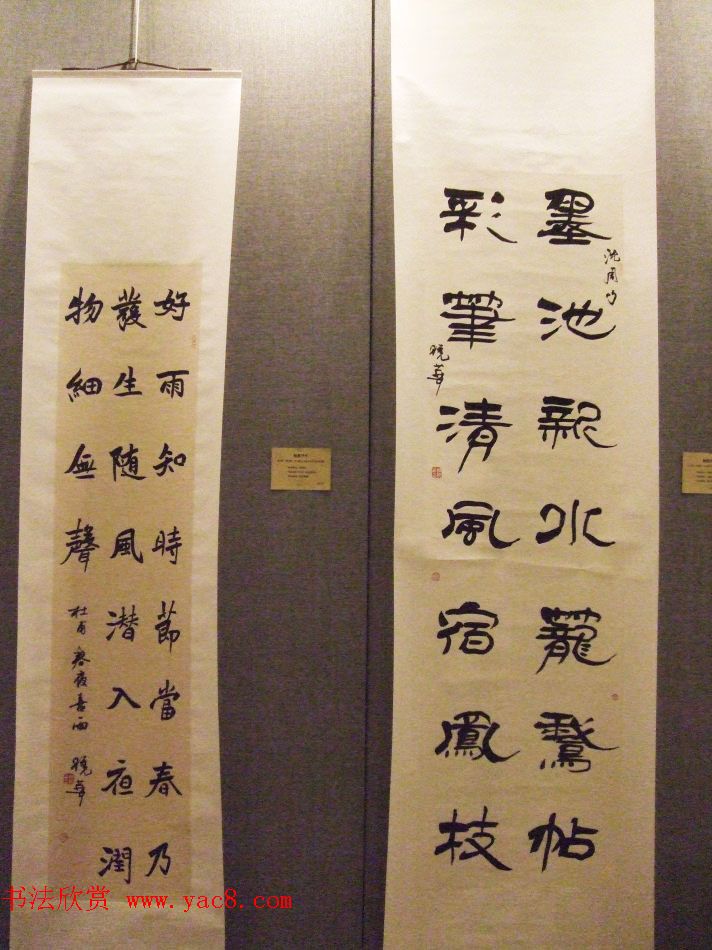 墨池新水籠鵞帖
彩筆清風宿鳳枝
沈周句
曉華
好雨知時節當春乃
發生随風潜入夜潤
物細無聲
杜甫春夜喜雨
曉華
书法欣赏 www.yac8.com